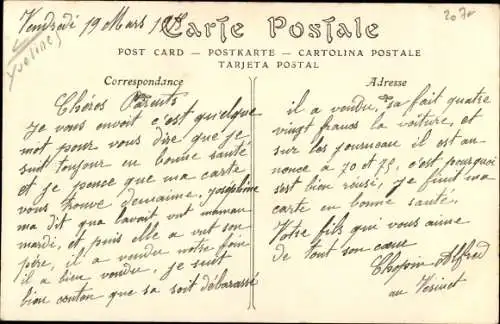 Vendredi 19 Mars
Yvelines
20 70
Carte Postale
POST CARD — POSTKARTE — CARTOLINA POSTALE
TARJETA POSTAL
Correspondance
Chéres Parents
Je vous envoit c'est quelque
mot pour vous dire que je
suit toujour en bonne santé
et je pence que ma carte
vous trouve demaime, joséphine
ma dit qua lavait vut maman
mardi, et puis elle a vut son
père, il a vendu notre foin
il a bien vendu, je suit
bien contan que sa soit débarassé
Adresse
il a vendu, sa fait quatre
vingt francs la voiture, et
sur les journeau il est an-
noncé a 70 et 75, c'est pourquoi
s'est bien réusi, je finit ma
carte en bonne santé,
Votre fils qui vous aime
de tout son cœur
Chopin Alfred
au Vésinet